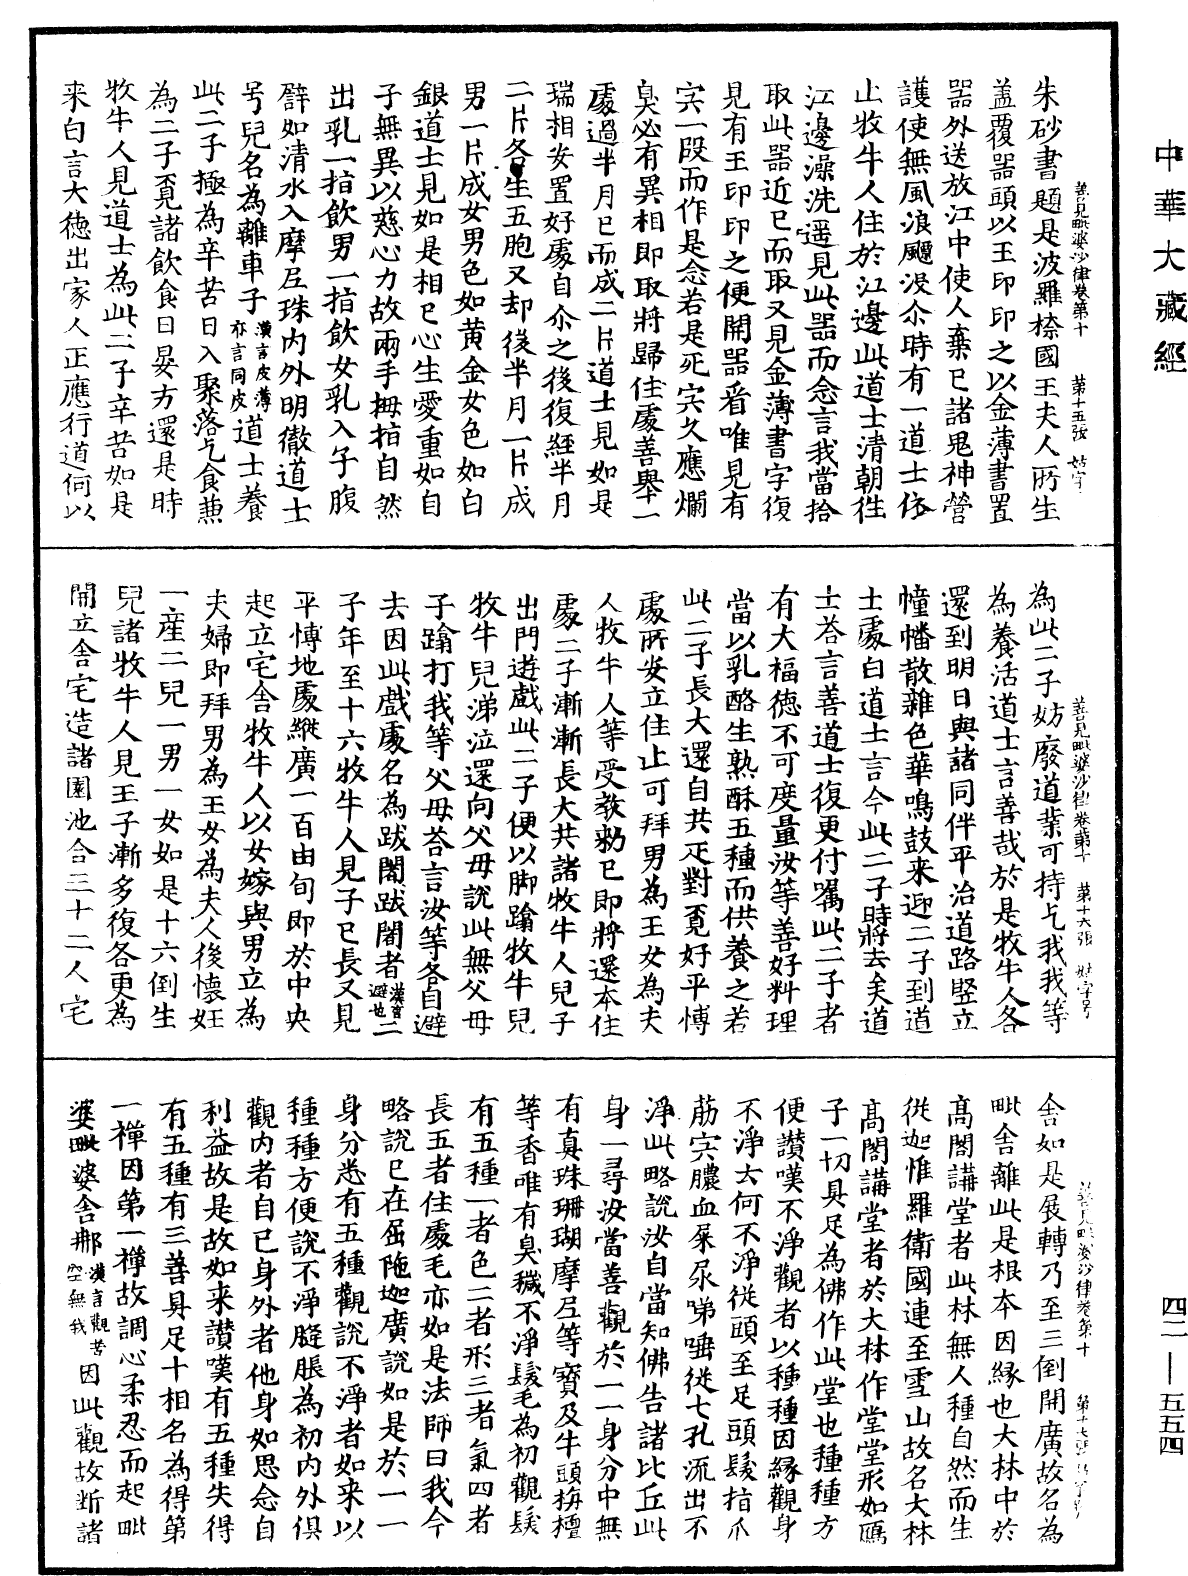 中華大藏經
善見毗婆沙律卷第十 第十五張 姑字
朱砂書題是波羅㮈國王夫人所生
盖覆器頭以王印印之以金薄書置
器外送放江中使人棄已諸鬼神營
護使無風浪飄没尒時有一道士依
止牧牛人住於江邊此道士清朝往
江邊澡洗遥見此器而念言我當拾
取此器近已而取又見金薄書字復
見有王印印之便開器看唯見有
宍一段而作是念若是死宍久應爛
臭必有異相即取將歸住處善舉一
處過半月已而成二片道士見如是
瑞相安置好處自尒之後復經半月
二片各生五胞又却後半月一片成
男一片成女男色如黄金女色如白
銀道士見如是相已心生愛重如自
子無異以慈心力故兩手拇指自然
出乳一指飲男一指飲女乳入子腹
譬如清水入摩尼珠内外明徹道士
号兒名為離車子漢言皮薄亦言同皮道士養
此二子極為辛苦日入聚落乞食兼
為二子覓諸飲食日晏方還是時
牧牛人見道士為此二子辛苦如是
来白言大德出家人正應行道何以
善見毗婆沙律卷第十 第十六張 姑字号
為此二子妨廢道業可持乞我我等
為養活道士言善哉於是牧牛人各
還到明日與諸同伴平治道路竪立
幢幡散雜色華鳴鼓来迎二子到道
士處白道士言今此二子時將去矣道
士荅言善道士復更付囑此二子者
有大福德不可度量汝等善好料理
當以乳酪生熟酥五種而供養之若
此二子長大還自共疋對覓好平愽
處所安立住止可拜男為王女為夫
人牧牛人等受教勑已即將還本住
處二子漸漸長大共諸牧牛人兒子
出門遊戲此二子便以脚蹋牧牛兒
牧牛兒涕泣還向父母說此無父母
子蹋打我等父母荅言汝等各自避
去因此戲處名為跋闍跋闍者漢言避也二
子年至十六牧牛人見子已長又見
平愽地處縱廣一百由旬即於中央
起立宅舍牧牛人以女嫁與男立為
夫婦即拜男為王女為夫人後懷妊
一産二兒一男一女如是十六倒生
兒諸牧牛人見王子漸多復各更為
開立舍宅造諸園池合三十二人宅
善見毗婆沙律卷第十 第十七張
舍如是展轉乃至三倒開廣故名為
毗舍離此是根本因縁也大林中於
髙閣講堂者此林無人種自然而生
従迦惟羅衛國連至雪山故名大林
髙閣講堂者於大林作堂堂形如鴈
子一切具足為佛作此堂也種種方
便讃嘆不淨觀者以種種因縁觀身
不淨云何不淨従頭至足頭髮指爪
䈥宍膿血屎尿啼唾従七孔流出不
淨此略說汝自當知佛告諸比丘此
身一尋汝當善觀於一一身分中無
有真珠珊瑚摩尼等寳及牛頭栴檀
等香唯有臭穢不淨髮毛為初觀髮
有五種一者色二者形三者氣四者
長五者住處毛亦如是法師曰我今
略說已在屈陁迦廣說如是於一一
身分悉有五種觀說不淨者如来以
種種方便說不淨膖脹為初内外俱
觀内者自已身外者他身如思念自
利益故是故如来讃嘆有五種失得
有五種有三善具足十相名為得第
一禪因第一禪故調心柔忍而起毗
婆毗婆舍那漢言觀苦空無我因此觀故断諸
四二—五五四